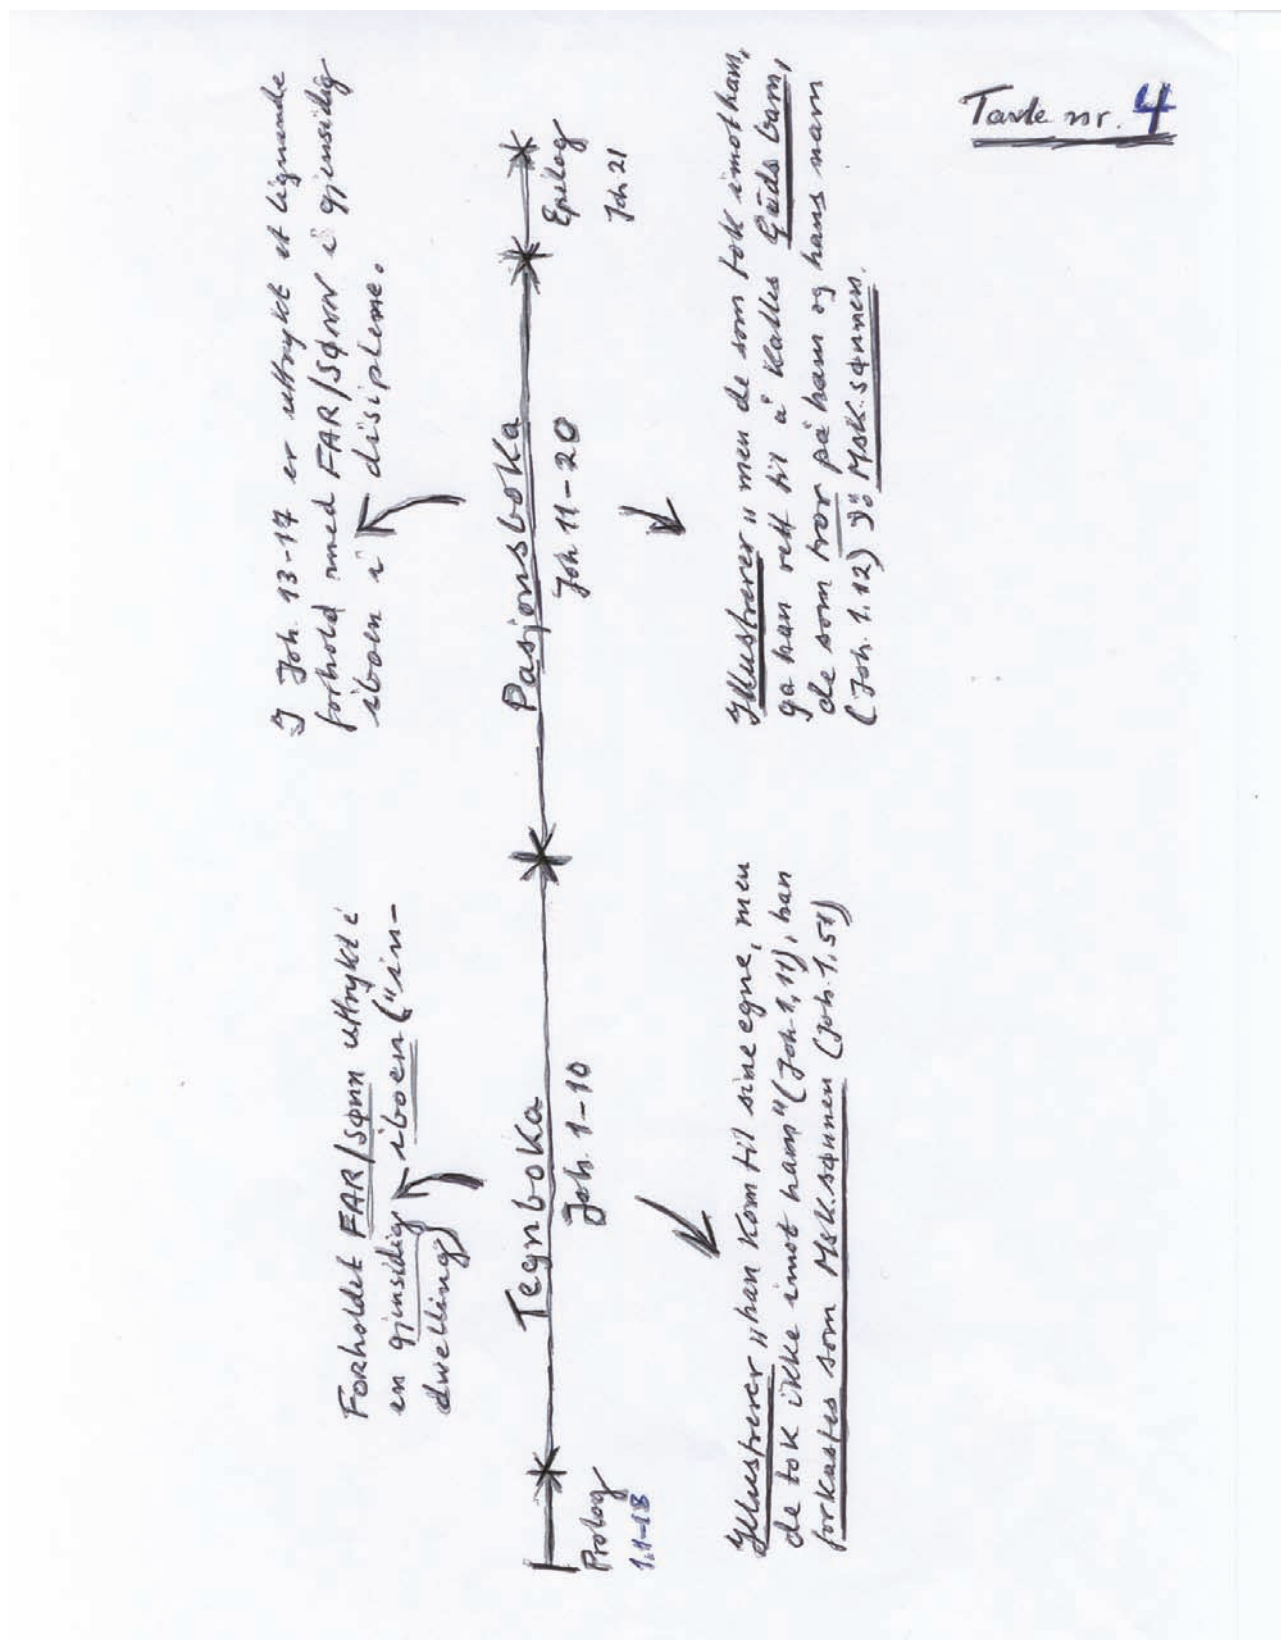 Tavle nr. 4
Forholdet FAR/Sønn uttrykt i
en gjensidig iboen ("in-
dwelling)
I Joh. 13-17 er uttrykt et lignende
forhold med FAR/SØNN i gjensidig
iboen i disiplene.
Tegnboka
Joh. 1-10
Pasjonsboka
Joh 11-20
Prolog
1.1-18
Epilog
Joh. 21
Illustrerer "han kom til sine egne, men
de tok ikke imot ham" (Joh. 1,11), han
forkastes som Msk.sønnen (Joh. 1.51)
Illustrerer "men de som tok imot ham,
ga han rett til å kalles Guds barn,
de som tror på ham og hans navn
(Joh. 1.12) Msk.sønnen.